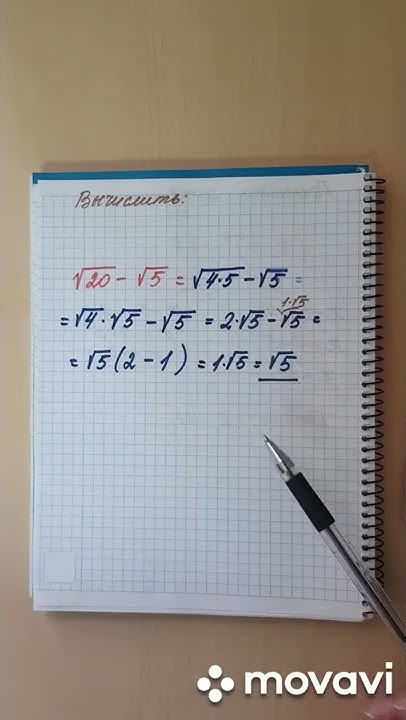 Вычислить:
√20 - √5 = √4·5 - √5 =
1·√5
= √4 · √5 - √5 = 2·√5 - √5 =
= √5 (2 - 1) = 1·√5 = √5
movavi